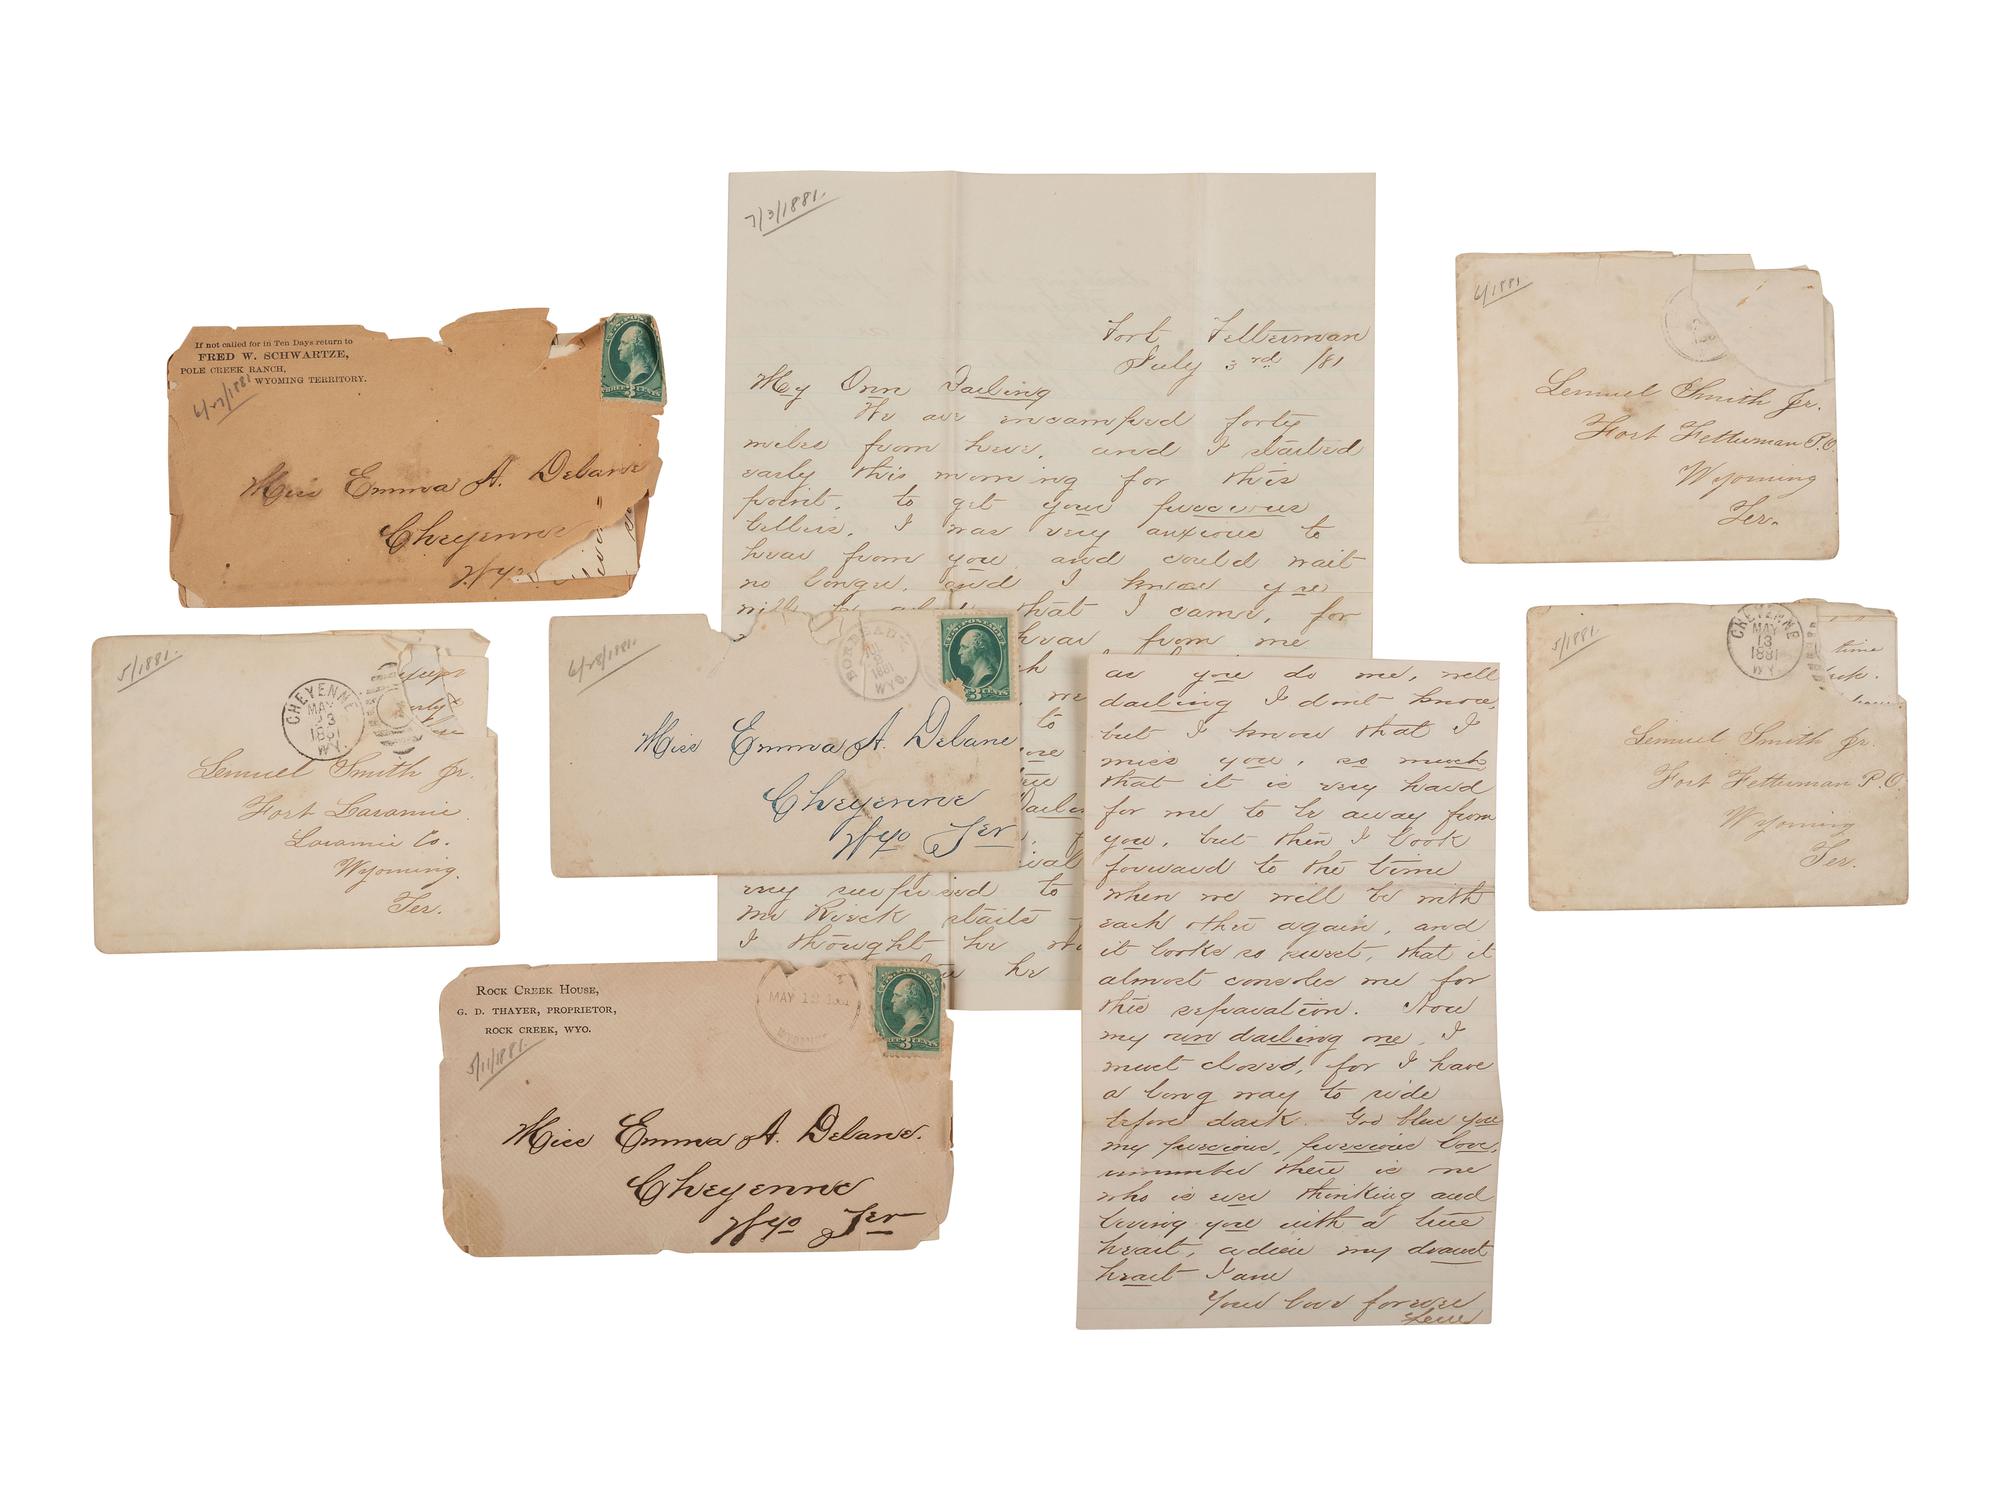 If not called for in Ten Days return to
FRED W. SCHWARTZE,
POLE CREEK RANCH,
WYOMING TERRITORY.
Miss Emma A. Delane
Cheyenne
Wyo
THREE CENTS
5/1881.
CHEYENNE
MAY
1881
WY.
Lemuel Smith Jr.
Fort Laramie
Laramie Co.
Wyoming.
Ter.
7/3/1881.
Fort Fetterman
July 3rd /81
My Own Darling
We are encamped forty
miles from here, and I started
early this morning for this
point, to get your precious
letters. I was very anxious to
hear from you and could wait
no longer, and I know you
that I came, for
hear from me
me
to
my surprised to
me Rieck starts
I thought he
he
6/28/1881.
1881
WYO.
U.S. POSTAGE
3 CENTS
Miss Emma A. Delane
Cheyenne
Wyo Ter
ROCK CREEK HOUSE,
G. D. THAYER, PROPRIETOR,
ROCK CREEK, WYO.
5/11/1881.
MAY 12 1881
U.S. POSTAGE
3
Miss Emma A. Delane.
Cheyenne
Wyo Ter
as you do me, well
darling I dont know,
but I know that I
miss you, so much
that it is very hard
for me to be away from
you, but then I look
forward to the time
when we will be with
each other again, and
it looks so sweet, that it
almost consoles me for
this separation. Now
my own darling one, I
must closed, for I have
a long way to ride
before dark. God bless you
my precious, precious love,
remember there is one
who is ever thinking and
loving you with a true
heart, adieu my dearest
heart I am
Your love forever
Lem
6/1881
Lemuel Smith Jr.
Fort Fetterman P.O.
Wyoming
Ter.
5/1881.
CHEYENNE
MAY
13
1881
WY.
time
Lemuel Smith Jr.
Fort Fetterman P.O.
Wyoming
Ter.